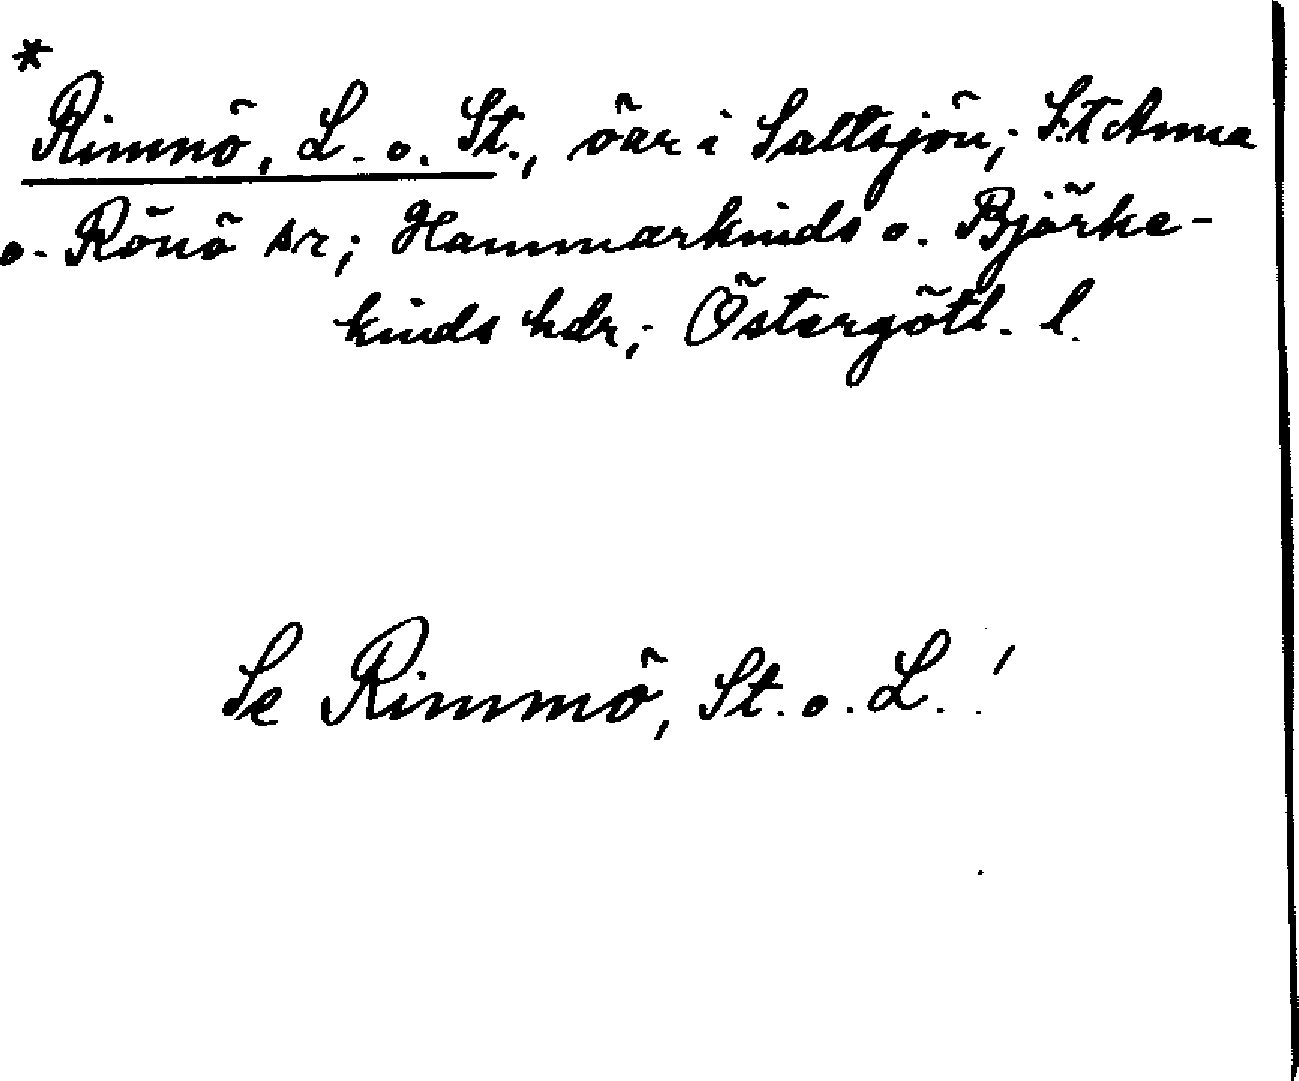 *
Rimmö, L. o. St., öar i Saltsjön; S:t Anna
o. Rönö sr; Hammarkinds o. Björke-
kinds hdr; Östergötl. l.
Se Rimmö, St. o. L.!